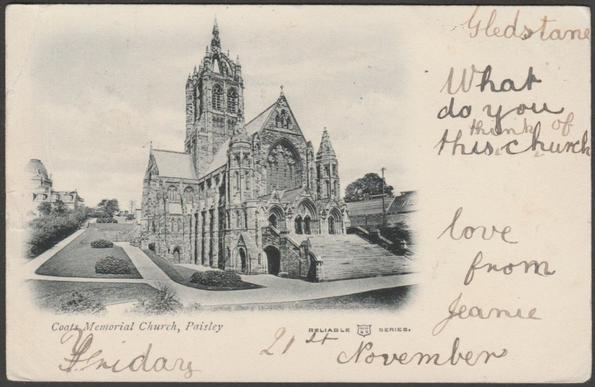 Gledstane
What
do you
think of
this church
love
from
Jeanie
Coats Memorial Church, Paisley
RELIABLE SERIES.
Friday 21st November